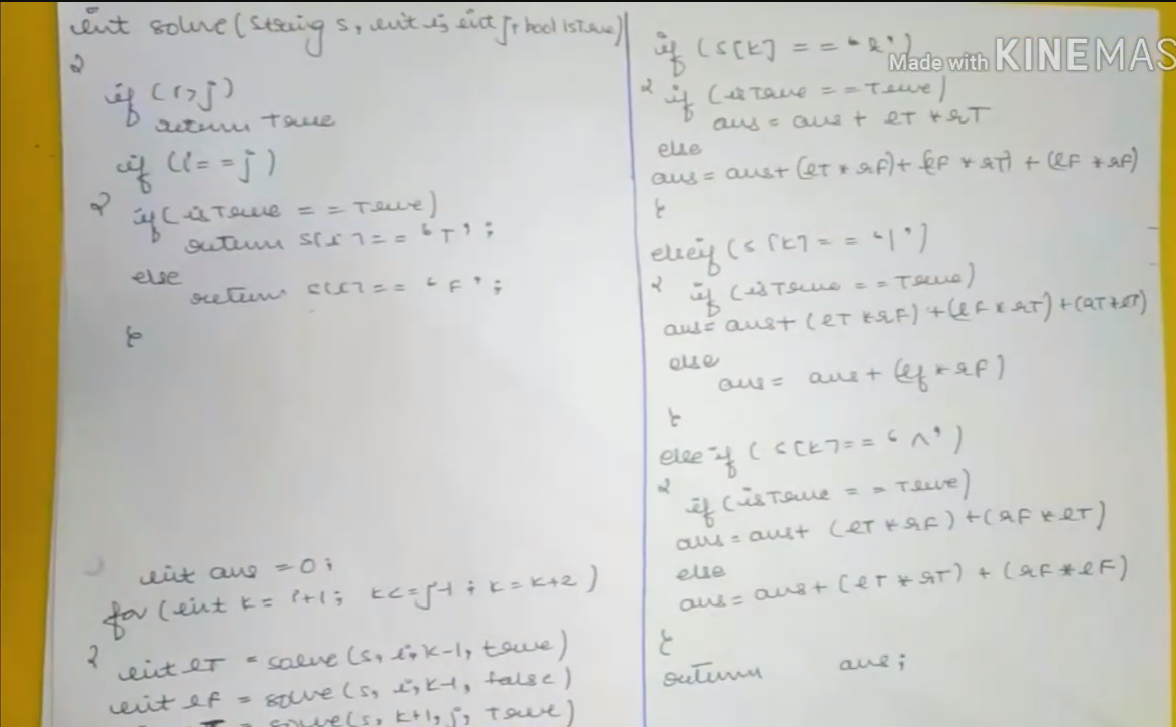 int solve(String s, int i, int j, bool isTrue)
{
if (i>j)
return true
if (i==j)
{
if (isTrue == True)
return s[i] == 'T';
else
return s[i] == 'F';
}
int ans = 0;
for (int k = i+1; k<=j-1; k=k+2)
{
int lT = solve(s, i, k-1, true)
int lF = solve(s, i, k-1, false)
solve(s, k+1, j, True)
if (s[k] == '&')
{ if (isTrue == True)
ans = ans + lT * rT
else
ans = ans + (lT * rF) + (lF * rT) + (lF * rF)
}
else if (s[k] == '|')
{ if (isTrue == True)
ans = ans + (lT * rF) + (lF * rT) + (rT * lT)
else
ans = ans + (lf * rF)
}
else if (s[k] == '^')
{
if (isTrue == True)
ans = ans + (lT * rF) + (rF * lT)
else
ans = ans + (lT * rT) + (rF * lF)
}
return ans;
Made with KINEMAS